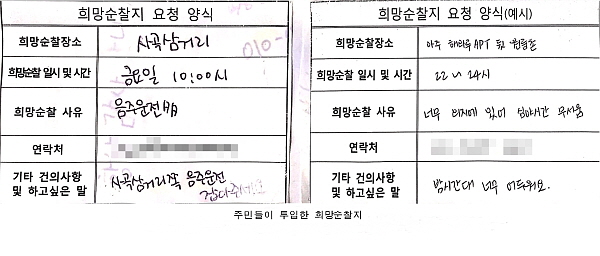 희망순찰지 요청 양식
희망순찰장소 사곡삼거리
희망순찰 일시 및 시간 금요일 10:00시
희망순찰 사유 음주운전
연락처
기타 건의사항 및 하고싶은 말 사곡삼거리쪽 음주운전
잡아주세요
010-
희망순찰지 요청 양식(예시)
희망순찰장소 아주 APT 뒤
희망순찰 일시 및 시간 22~24시
희망순찰 사유 너무 외지에 있어 심야시간 무서움
연락처
기타 건의사항 및 하고싶은 말 밤시간대 너무 어두워요.
주민들이 투입한 희망순찰지